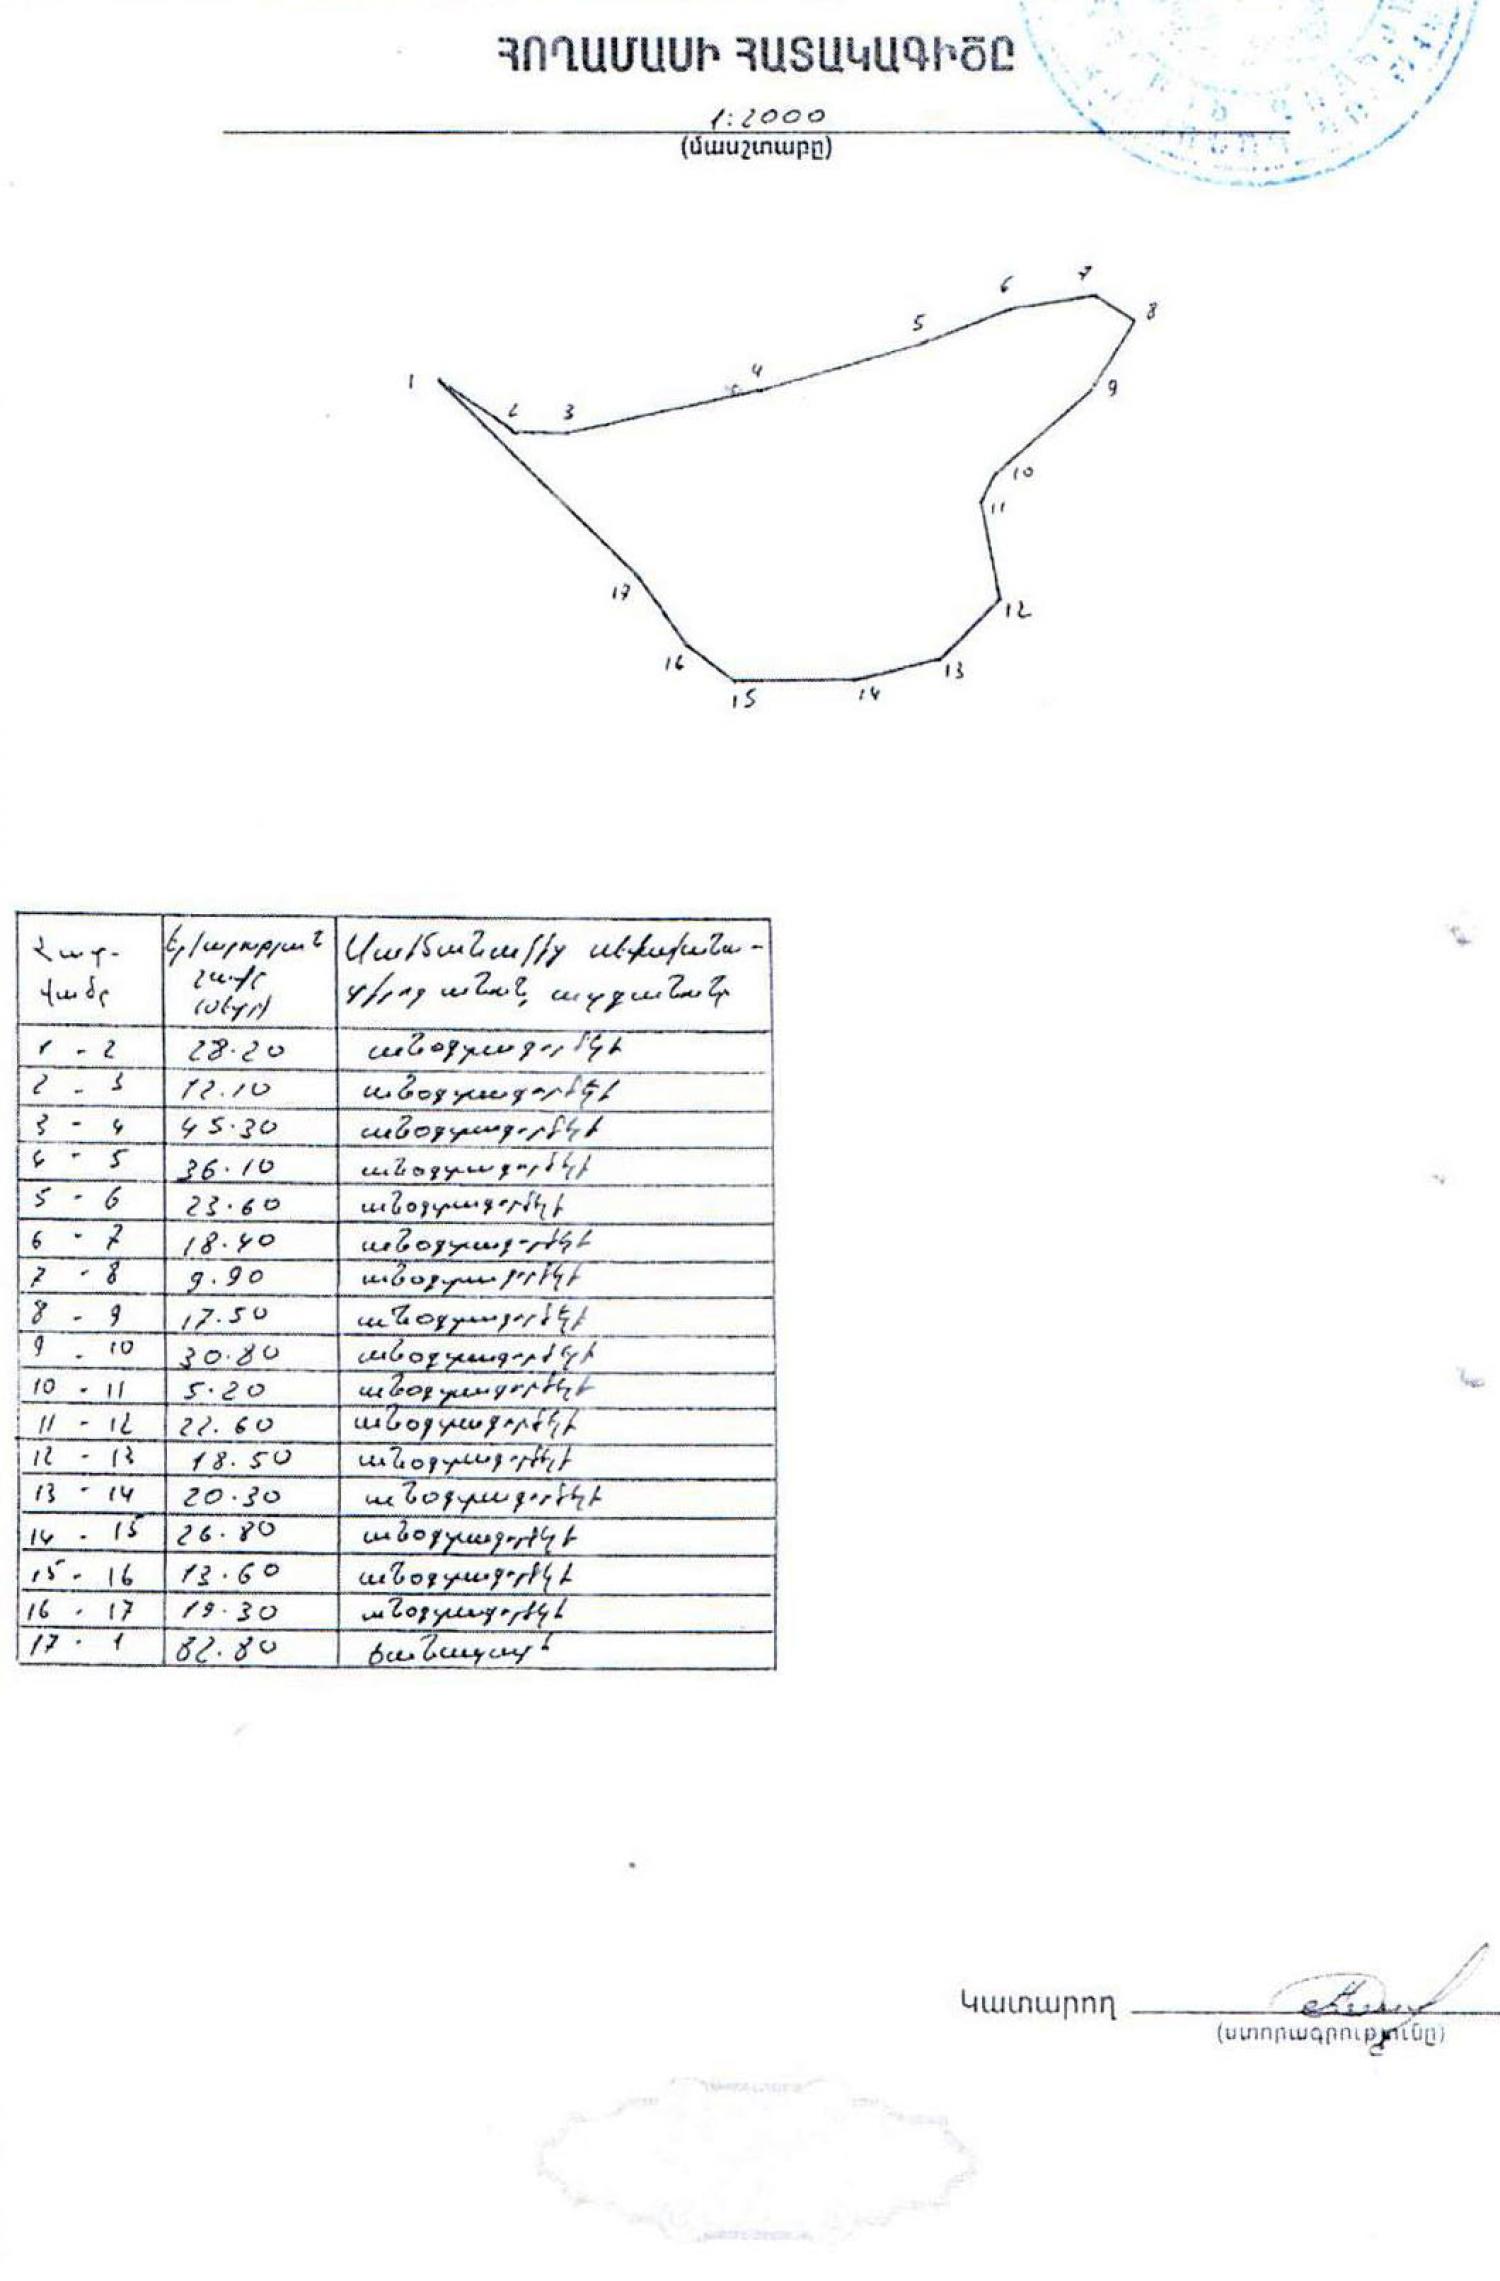 ՀՈՂԱՄԱՍԻ ՀԱՏԱԿԱԳԻԾԸ
1:2000
(մասշտաբը)
1
2
3
4
5
6
7
8
9
10
11
12
13
14
15
16
17
Հատ-վածը երկարության չափը (մետր) Սահմանակից սեփականա-տիրոջ անուն, ազգանունը
1 - 2 28.20 անօգտագործելի
2 - 3 12.10 անօգտագործելի
3 - 4 45.30 անօգտագործելի
4 - 5 36.10 անօգտագործելի
5 - 6 23.60 անօգտագործելի
6 - 7 18.40 անօգտագործելի
7 - 8 9.90 անօգտագործելի
8 - 9 17.50 անօգտագործելի
9 - 10 30.80 անօգտագործելի
10 - 11 5.20 անօգտագործելի
11 - 12 22.60 անօգտագործելի
12 - 13 18.50 անօգտագործելի
13 - 14 20.30 անօգտագործելի
14 - 15 26.80 անօգտագործելի
15 - 16 13.60 անօգտագործելի
16 - 17 19.30 անօգտագործելի
17 - 1 82.80 ճանապարհ
Կատարող
(ստորագրությունը)